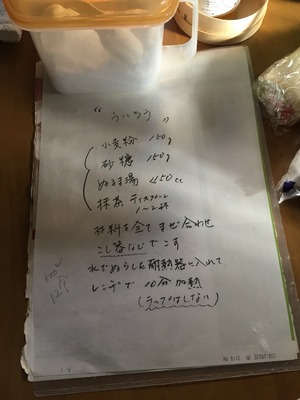 “ういろう”
小麦粉 150g
砂糖 150g
ぬるま湯 450cc
抹茶 ティスプーン
1〜2杯
材料を全てまぜ合わせ
こし器などでこす
水でぬらした耐熱器に入れて
レンジで 10分加熱
(ラップはしない)
500W
12分